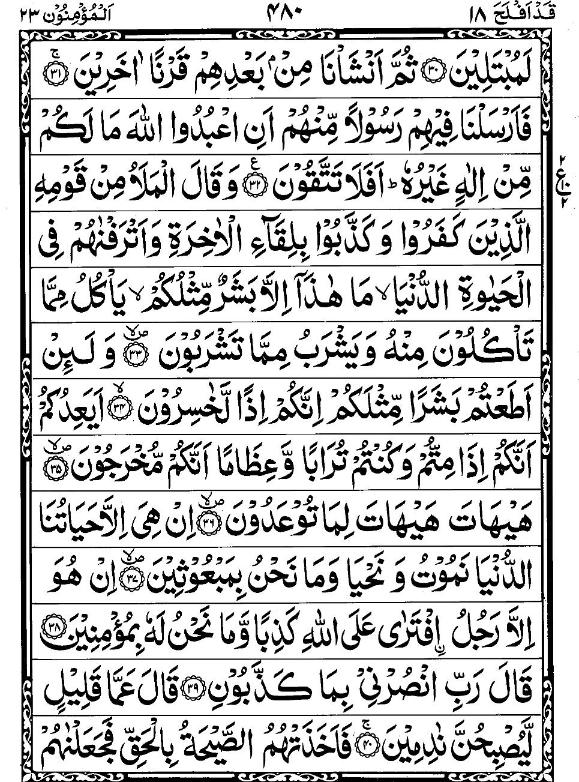 قَدْ اَفْلَحَ ١٨ ۴۸۰ اَلْمُؤْمِنُوْن ٢٣
لَمُبْتَلِيْنَ ﴿۳۰﴾ ثُمَّ اَنْشَاْنَا مِنْۢ بَعْدِهِمْ قَرْنًا اٰخَرِيْنَ ۚ﴿۳۱﴾
فَاَرْسَلْنَا فِيْهِمْ رَسُوْلًا مِّنْهُمْ اَنِ اعْبُدُوا اللّٰهَ مَا لَكُمْ
مِّنْ اِلٰهٍ غَيْرُهٗ ؕ اَفَلَا تَتَّقُوْنَ ﴿۳۲﴾ ع وَقَالَ الْمَلَاُ مِنْ قَوْمِهِ
الَّذِيْنَ كَفَرُوْا وَكَذَّبُوْا بِلِقَآءِ الْاٰخِرَةِ وَاَتْرَفْنٰهُمْ فِى
الْحَيٰوةِ الدُّنْيَا ۙ مَا هٰذَاۤ اِلَّا بَشَرٌ مِّثْلُكُمْ ۙ يَاْكُلُ مِمَّا
تَاْكُلُوْنَ مِنْهُ وَيَشْرَبُ مِمَّا تَشْرَبُوْنَ ۪ۙ﴿۳۳﴾ وَلَئِنْ
اَطَعْتُمْ بَشَرًا مِّثْلَكُمْ اِنَّكُمْ اِذًا لَّخٰسِرُوْنَ ۙ﴿۳۴﴾ اَيَعِدُكُمْ
اَنَّكُمْ اِذَا مِتُّمْ وَكُنْتُمْ تُرَابًا وَّعِظَامًا اَنَّكُمْ مُّخْرَجُوْنَ ۪ۙ﴿۳۵﴾
هَيْهَاتَ هَيْهَاتَ لِمَا تُوْعَدُوْنَ ۪ۙ﴿۳۶﴾ اِنْ هِىَ اِلَّا حَيَاتُنَا
الدُّنْيَا نَمُوْتُ وَنَحْيَا وَمَا نَحْنُ بِمَبْعُوْثِيْنَ ۪ۙ﴿۳۷﴾ اِنْ هُوَ
اِلَّا رَجُلُ اۨفْتَرٰى عَلَى اللّٰهِ كَذِبًا وَّمَا نَحْنُ لَهٗ بِمُؤْمِنِيْنَ ﴿۳۸﴾
قَالَ رَبِّ انْصُرْنِىْ بِمَا كَذَّبُوْنِ ﴿۳۹﴾ قَالَ عَمَّا قَلِيْلٍ
لَّيُصْبِحُنَّ نٰدِمِيْنَ ۚ﴿۴۰﴾ فَاَخَذَتْهُمُ الصَّيْحَةُ بِالْحَقِّ فَجَعَلْنٰهُمْ